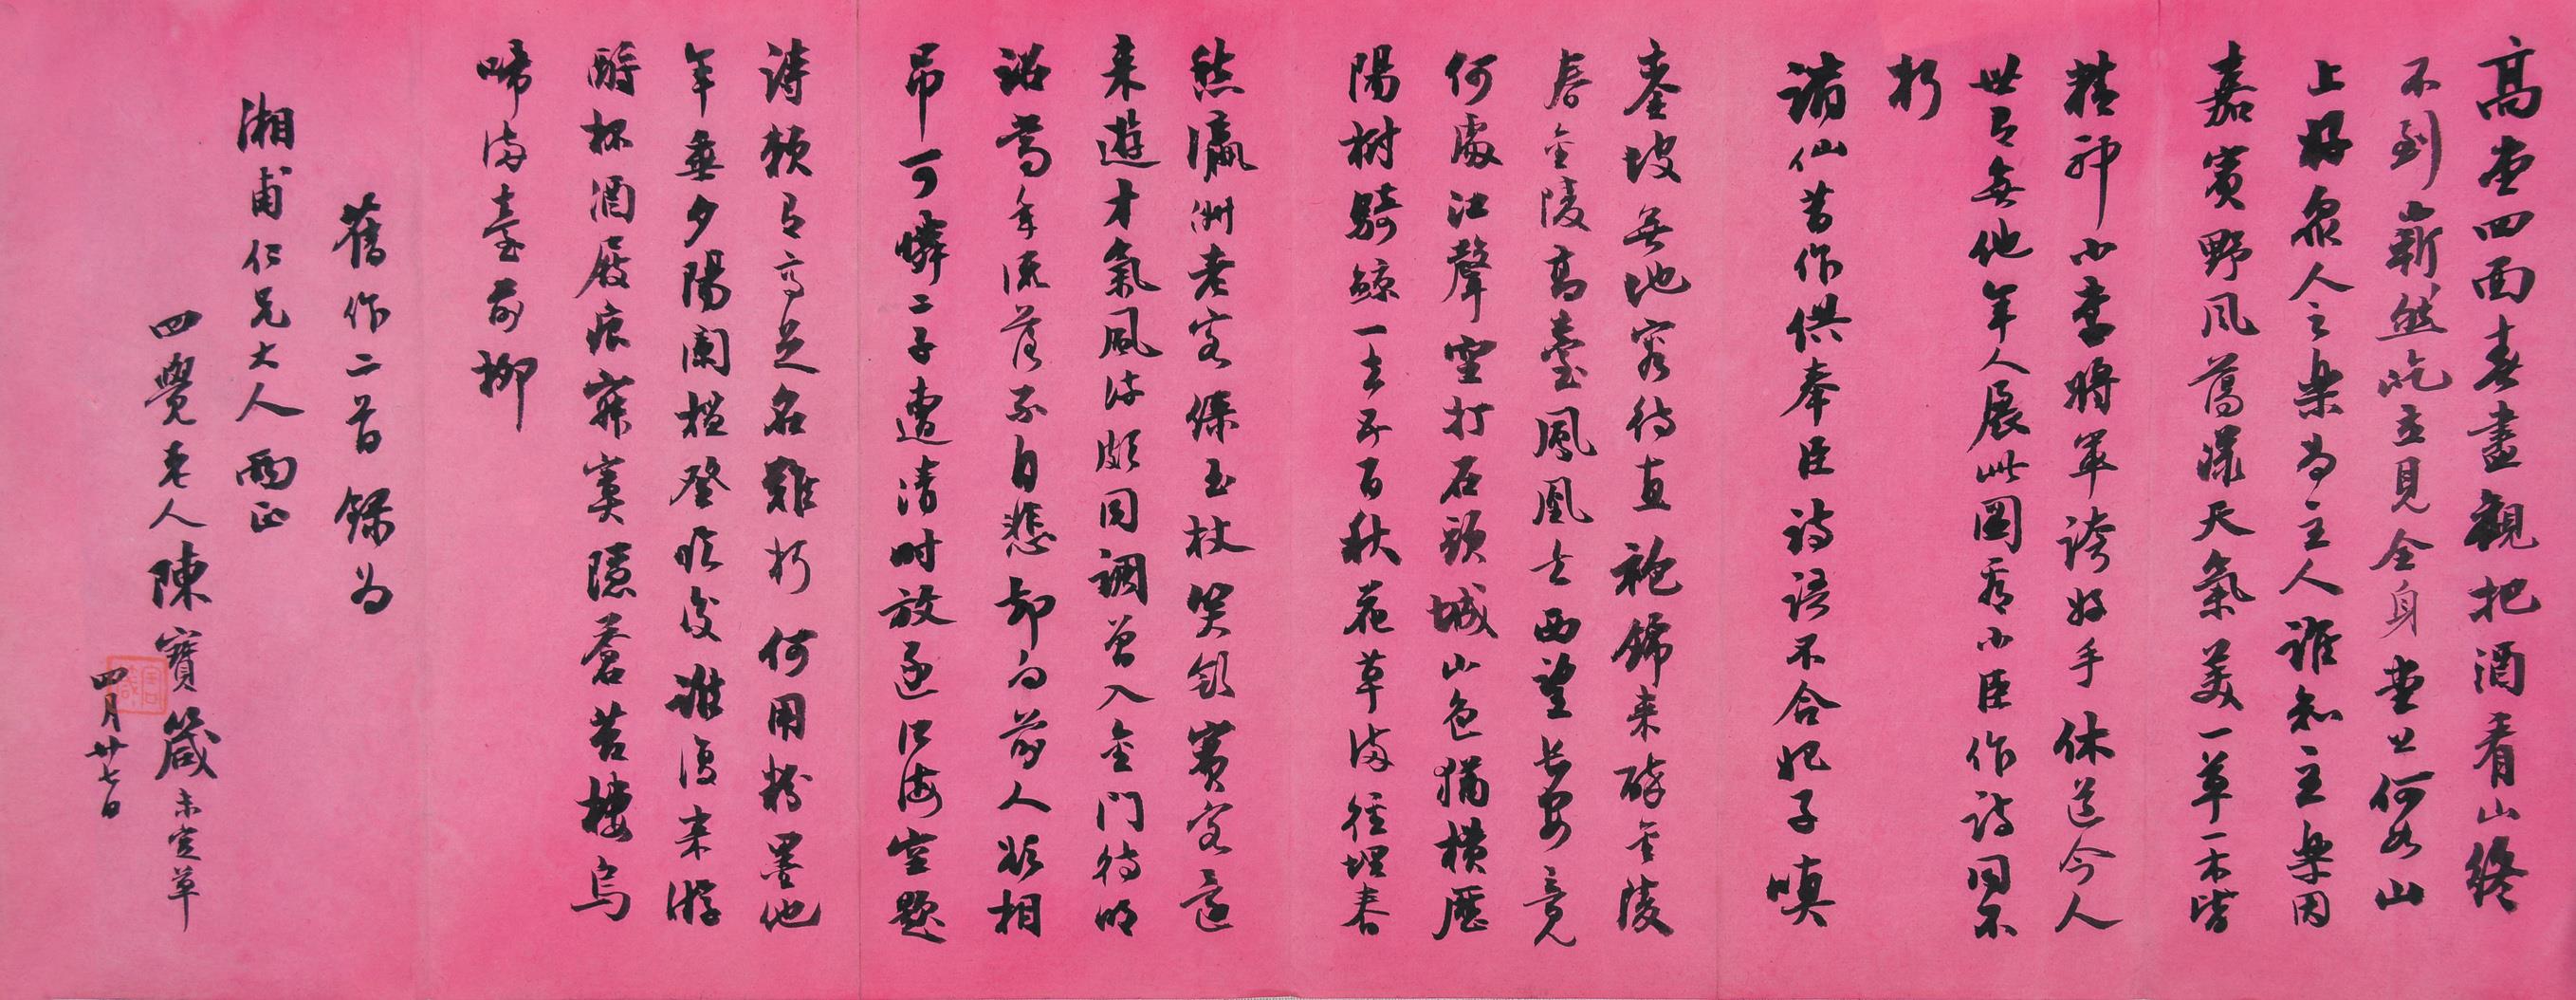 高堂四面春畫觀把酒看山終
不到嶄然屹立見全身堂上何如山
上好眾人之樂為主人誰知主樂因
嘉賓野風萬漾天氣美一草一木皆
精神小李將軍誇好手休道今人
世已無他年人展此圖看小臣作詩同不
朽
謫仙昔作供奉臣詩語不合妃子嗔
鑾坡無地容待直袍錦來醉金陵
春金陵高臺鳳凰去西望長安竟
何處江聲空打石頭城山色猶橫歷
陽樹騎鯨一去五百秋花草滿徑埋春
愁瀛洲老客綠玉杖笑領賓客還
來遊才氣風流頗同調曾入金門待明
詔當年流落不自悲却向前人頻相
吊可憐二子遭清時放逐江海空題
詩賴有高足名難朽何用粉墨他
年垂夕陽闌檻登臨後誰復來游
酹杯酒屐痕寂寞隱蒼苔棲烏
啼滿臺前柳
舊作二首錄為
湘甫仁兄大人兩正
四覺老人陳寶箴未定草
四月廿七日